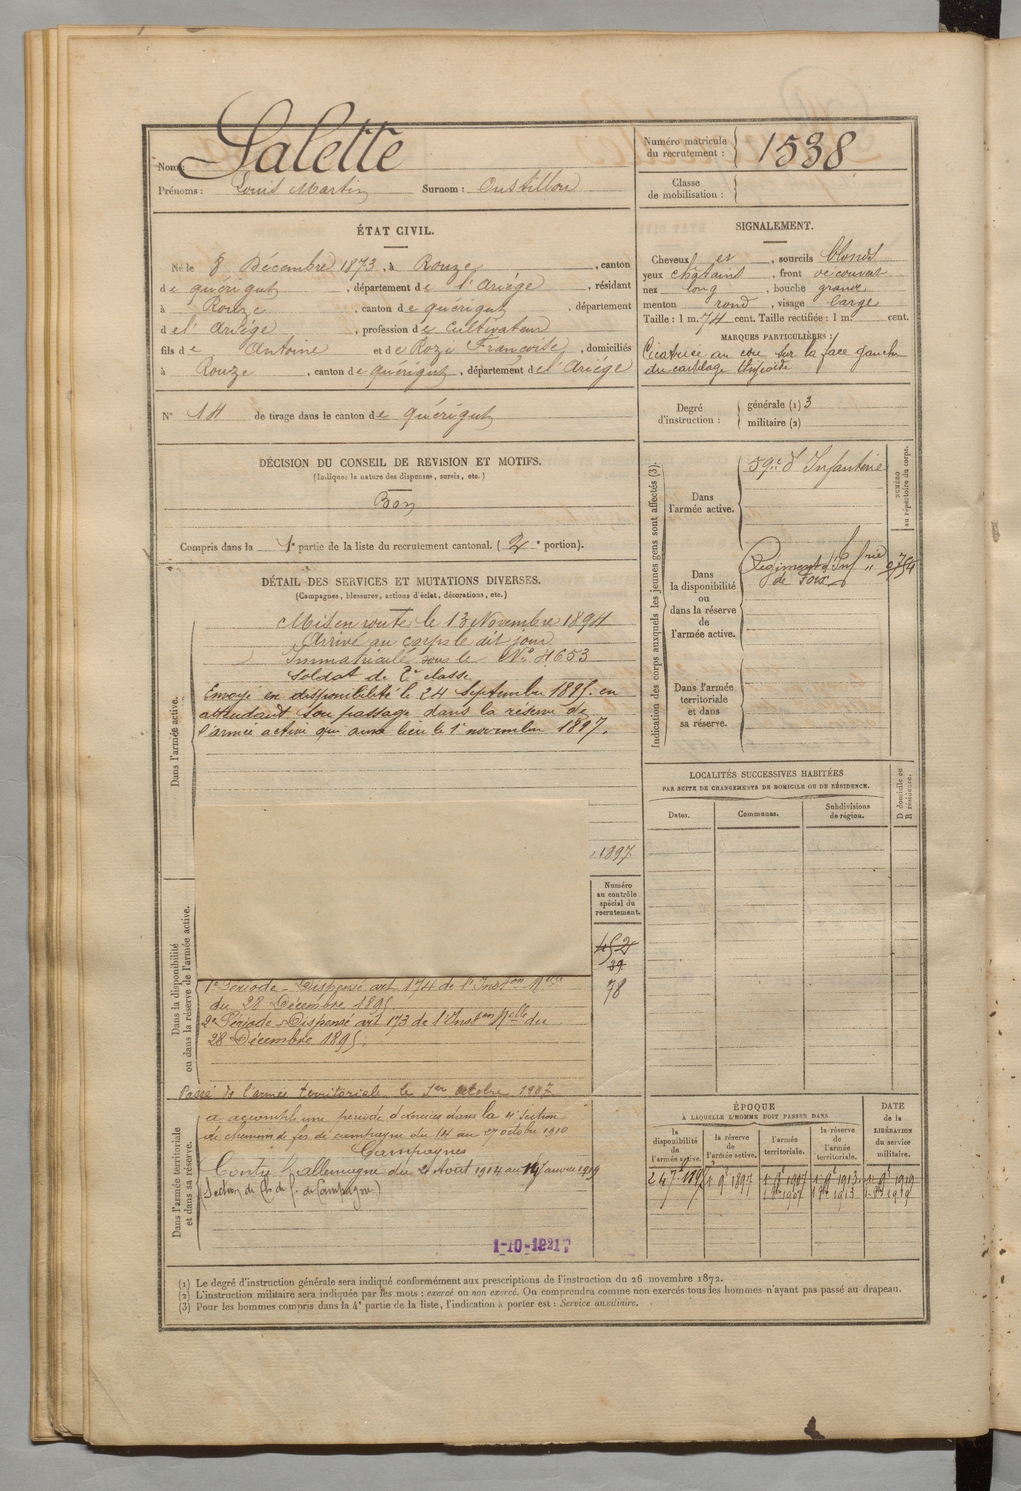 Nom : Salette
Prénoms : Louis Martin Surnom : Oustillou
Numéro matricule du recrutement : 1538
Classe de mobilisation :
ÉTAT CIVIL.
Né le 8 Décembre 1873, à Rouze, canton
de quérigut, département de l'Ariège, résidant
à Rouze, canton de quérigut, département
de l'Ariège, profession de cultivateur
fils de Antoine et de Rozi Françoise, domiciliés
à Rouze, canton de quérigut, département de l'Ariège
N° 14 de tirage dans le canton de quérigut
SIGNALEMENT.
Cheveux et, sourcils blonds
yeux châtains, front découvert
nez long, bouche grande
menton rond, visage large
Taille : 1 m. 74 cent. Taille rectifiée : 1 m. cent.
MARQUES PARTICULIÈRES :
Cicatrice au cou sur la face gauche
du cartilage thyroïde
Degré d'instruction : générale (1) 3
militaire (2)
DÉCISION DU CONSEIL DE REVISION ET MOTIFS.
(Indiquer la nature des dispenses, sursis, etc.)
Bon
Compris dans la 1e partie de la liste du recrutement cantonal. (2e portion).
DÉTAIL DES SERVICES ET MUTATIONS DIVERSES.
(Campagnes, blessures, actions d'éclat, décorations, etc.)
Dans l'armée active.
Mis en route le 13 Novembre 1894
Arrivé au corps le dit jour
Immatriculé sous le N° 4653
Soldat de 2e classe
Envoyé en disponibilité le 24 Septembre 1895 en
attendant son passage dans la réserve de
l'armée active qui aura lieu le 1er novembre 1897.
1897
Numéro
au contrôle
spécial du
recrutement.
452
39
78
Dans la disponibilité
ou dans la réserve de l'armée active.
1e Période - Dispensé art 174 de l'Inston Melle
du 28 Décembre 1895
2e Période - Dispensé art 173 de l'Inston Melle du
28 Décembre 1895.
Passé ds l'armée territoriale le 1er octobre 1907
Dans l'armée territoriale
et dans sa réserve.
a accompli une période d'exercices dans la 4e Section
de chemin de fer de campagne du 14 au 27 octobre 1910
Campagnes
Contre l'allemagne du 2 Août 1914 au Janvier 1919
(Section de Ch. de f. de Campagne)
1-10-1921
Indication des corps auxquels les jeunes gens sont affectés (3).
NUMÉRO
au répertoire du corps.
Dans
l'armée active.
59e d'Infanterie
Dans
la disponibilité
ou
dans la réserve
de
l'armée active.
Régiment d'Infrie
de Foix
Dans l'armée
territoriale
et dans
sa réserve.
LOCALITÉS SUCCESSIVES HABITÉES
PAR SUITE DE CHANGEMENTS DE DOMICILE OU DE RÉSIDENCE.
Dates. Communes. Subdivisions de région.
D domicile ou
R résidence.
ÉPOQUE
À LAQUELLE L'HOMME DOIT PASSER DANS
la disponibilité de l'armée active.
la réserve de l'armée active.
l'armée territoriale.
la réserve de l'armée territoriale.
DATE de la LIBÉRATION du service militaire.
24 7bre 1895 1 9bre 1897 1 9bre 1907 1 9bre 1913 1 9bre 1919
1 8bre 1907 1 8bre 1913 1 8bre 1919
(1) Le degré d'instruction générale sera indiqué conformément aux prescriptions de l'instruction du 26 novembre 1872.
(2) L'instruction militaire sera indiquée par les mots : exercé ou non exercé. On comprendra comme non exercés tous les hommes n'ayant pas passé au drapeau.
(3) Pour les hommes compris dans la 4e partie de la liste, l'indication à porter est : Service auxiliaire.